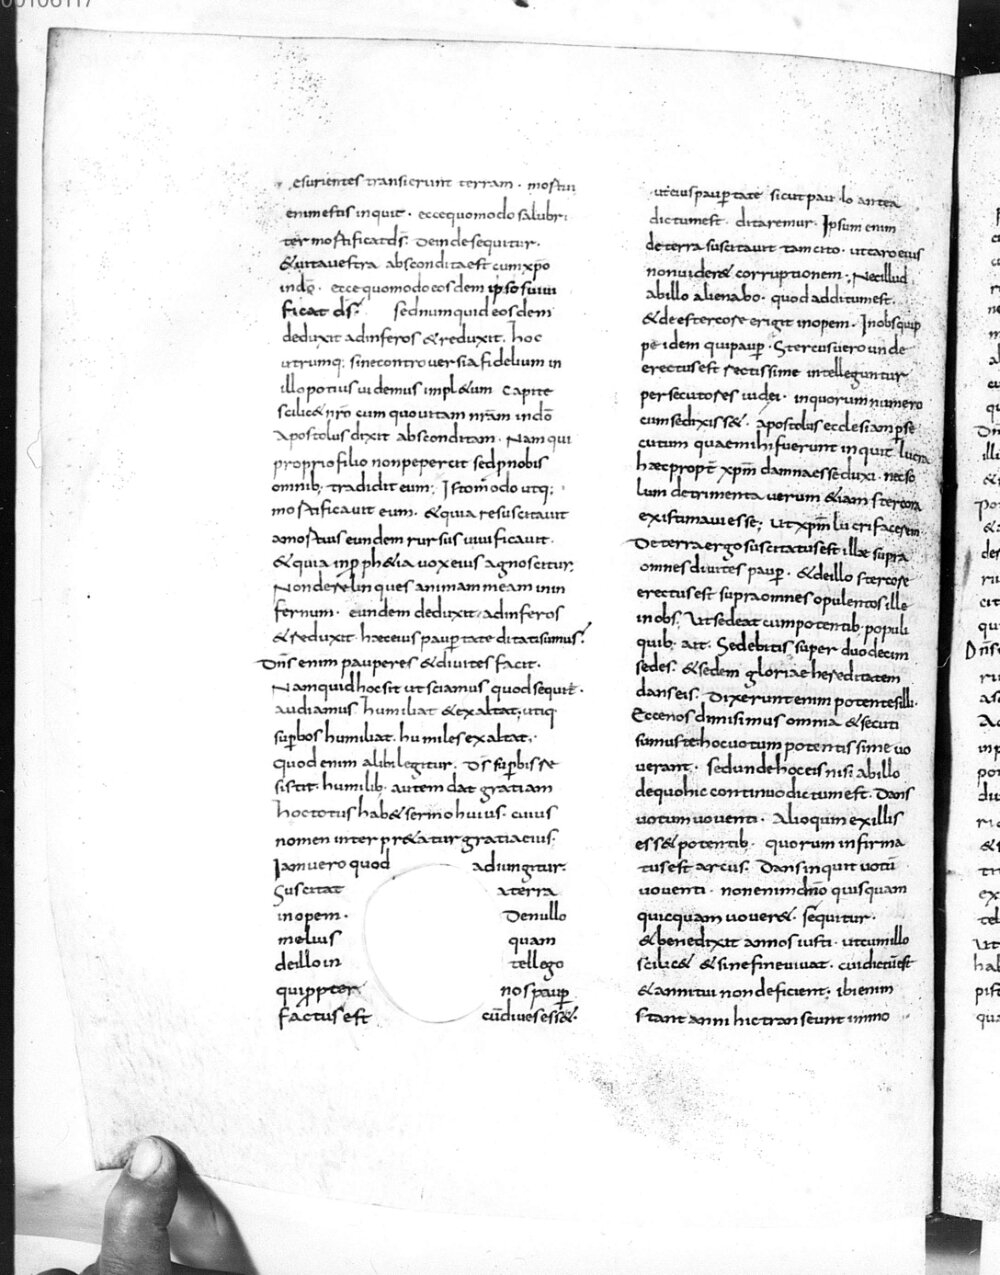 esurientes transierunt terram· mostui
enimestis inquit· eccequomodo salubri
ter mostificatd̄s· Deindesequitur·
&uitauestra absconditaest cumxp̄o
indō· eccequomodoeosdem ipsosuiui
ficat d̄s· sednumquid eosdem
deduxit adinferos &reduxit· hoc
utrumq; sinecontrouersia fidelium in
illo potius uidemus impl&um capite
scilic& nr̄o cum quo uitam nr̄am indō
apostolus dixit absconditam· Nam qui
propriofilio nonpepercit sedpnobis
omnib; tradidit eum; Istom̄odo utq;
mostificauit eum· &quia resuscitauit
amostuis eundem rursus uiuificauit·
&quia inp̱ph&ia uox eius agnoscitur;
Nonderelinques animam meam inin
fernum· eundem deduxit adinferos
&reduxit· haceius paup̱tate ditatisumus;
Dn̄s enim pauperes &diuites facit·
Namquidhocsit ut sciamus quodsequit̄·
audiamus humiliat &exaltat; utiq
sup̱bos humiliat· humiles exaltat·
quod enim alibi legitur· D̄s sup̱bis re
sistit· humilib· autem dat gratiam
hoctotus hab& sermo huius· cuius
nomen interpr&atur gratiaeius·
Iamuero quod adiungitur·
Suscitat aterra
inopem· Denullo
melius quam
deillo in tellego
quip̱pter nos paup̱
factus est cūdiues ess&·
uteius paup̱tate sicut paulo antea
dictumest· ditaremur· Ipsum enim
deterra suscitauit tamcito· utcaro eius
nonuider& corruptionem· Necillud
abillo alienabo· quod additumest·
&destercore erigit inopem· Inobsquip
pe idem quipaup̱· Stercusuero unde
erectus est rectissime intelleguntur
persecutores iudei· inquorumnumero
cumsedixiss&· apostolus ecclesiamp̱se
cutum quaemihi fuerunt inquit lucra
haec propt̄ xp̄m damnaesseduxi· necso
lum detrimenta uerum &iam stercora
existimauiesse; utxp̄m lucrifacerem
Deterraergosuscitatusest ille supra
omnes diuites paup̱· &deillo stercore
erectus est supraomnes opulentos ille
inobs· Utsedeat cumpotentib· populi
quib; ait· Sedebitis super duodecim
sedes· &sedem gloriae hereditatem
danseis· Dixeruntenim potentesilli·
Eccenos dimisimus omnia &secuti
sumuste hocuotum potentissime uo
uerant· sedundehoceis nisi abillo
dequohic continuo dictumest· Dans
uotum uouenti· Alioquin exillis
ess& potentib· quorum infirma
tus est arcus· Dansinquit uotū
uouenti· nonenimdn̄o quisquam
quicquam uouer&· sequitur·
&benedixit annos iusti· utcumillo
scilic& &sinefineuiuat· cuidictūest
&annitui nondeficient; ibienim
stant anni hictranseunt immo